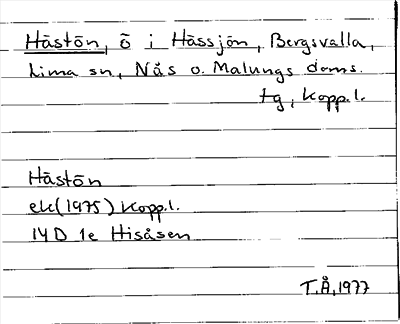 Hästön, ö i Hässjön, Bergsvalla,
Lima sn, Nås o. Malungs doms.
tg, Kopp.l.
Hästön
ek(1975) Kopp.l.
14D 1e Hisåsen
T.Å, 1977